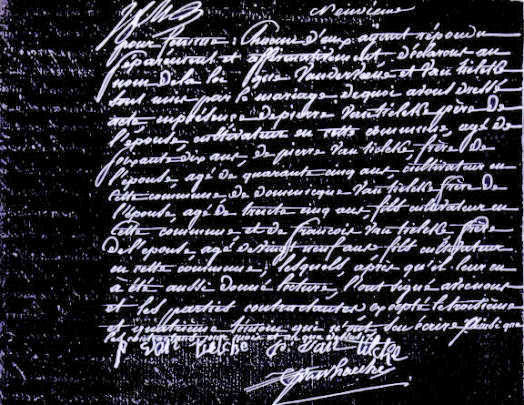 Neuvieme
pour femme : Chacun d'eux ayant répondu
séparement et affirmativement, déclarons au
nom de la loi que Vanderhaeghe et Van tieltke
sont unis par le mariage : de quoi avons dressé
acte en présence de pierre Van tieltke père de
l'épouse, cultivateur en cette commune, agé de
soixante dix ans, de pierre Van tieltke frère de
l'épouse, agé de quarante cinq ans, cultivateur en
cette commune de dominique Van tieltke frère de
l'épouse, agé de trente cinq ans, fils cultivateur en
cette commune et de francois Van tieltke frère
de l'epouse, agé de vingt neuf ans fils cultivateur
en cette commune ; lesquels après qu'il leur en
a été aussi donné lecture, l'ont signé avec nous
et les parties contractantes excepté le troisième
et quatrieme temoin qui n'ont su écrire ainsi que
p Van tielcke J: Van tilcke